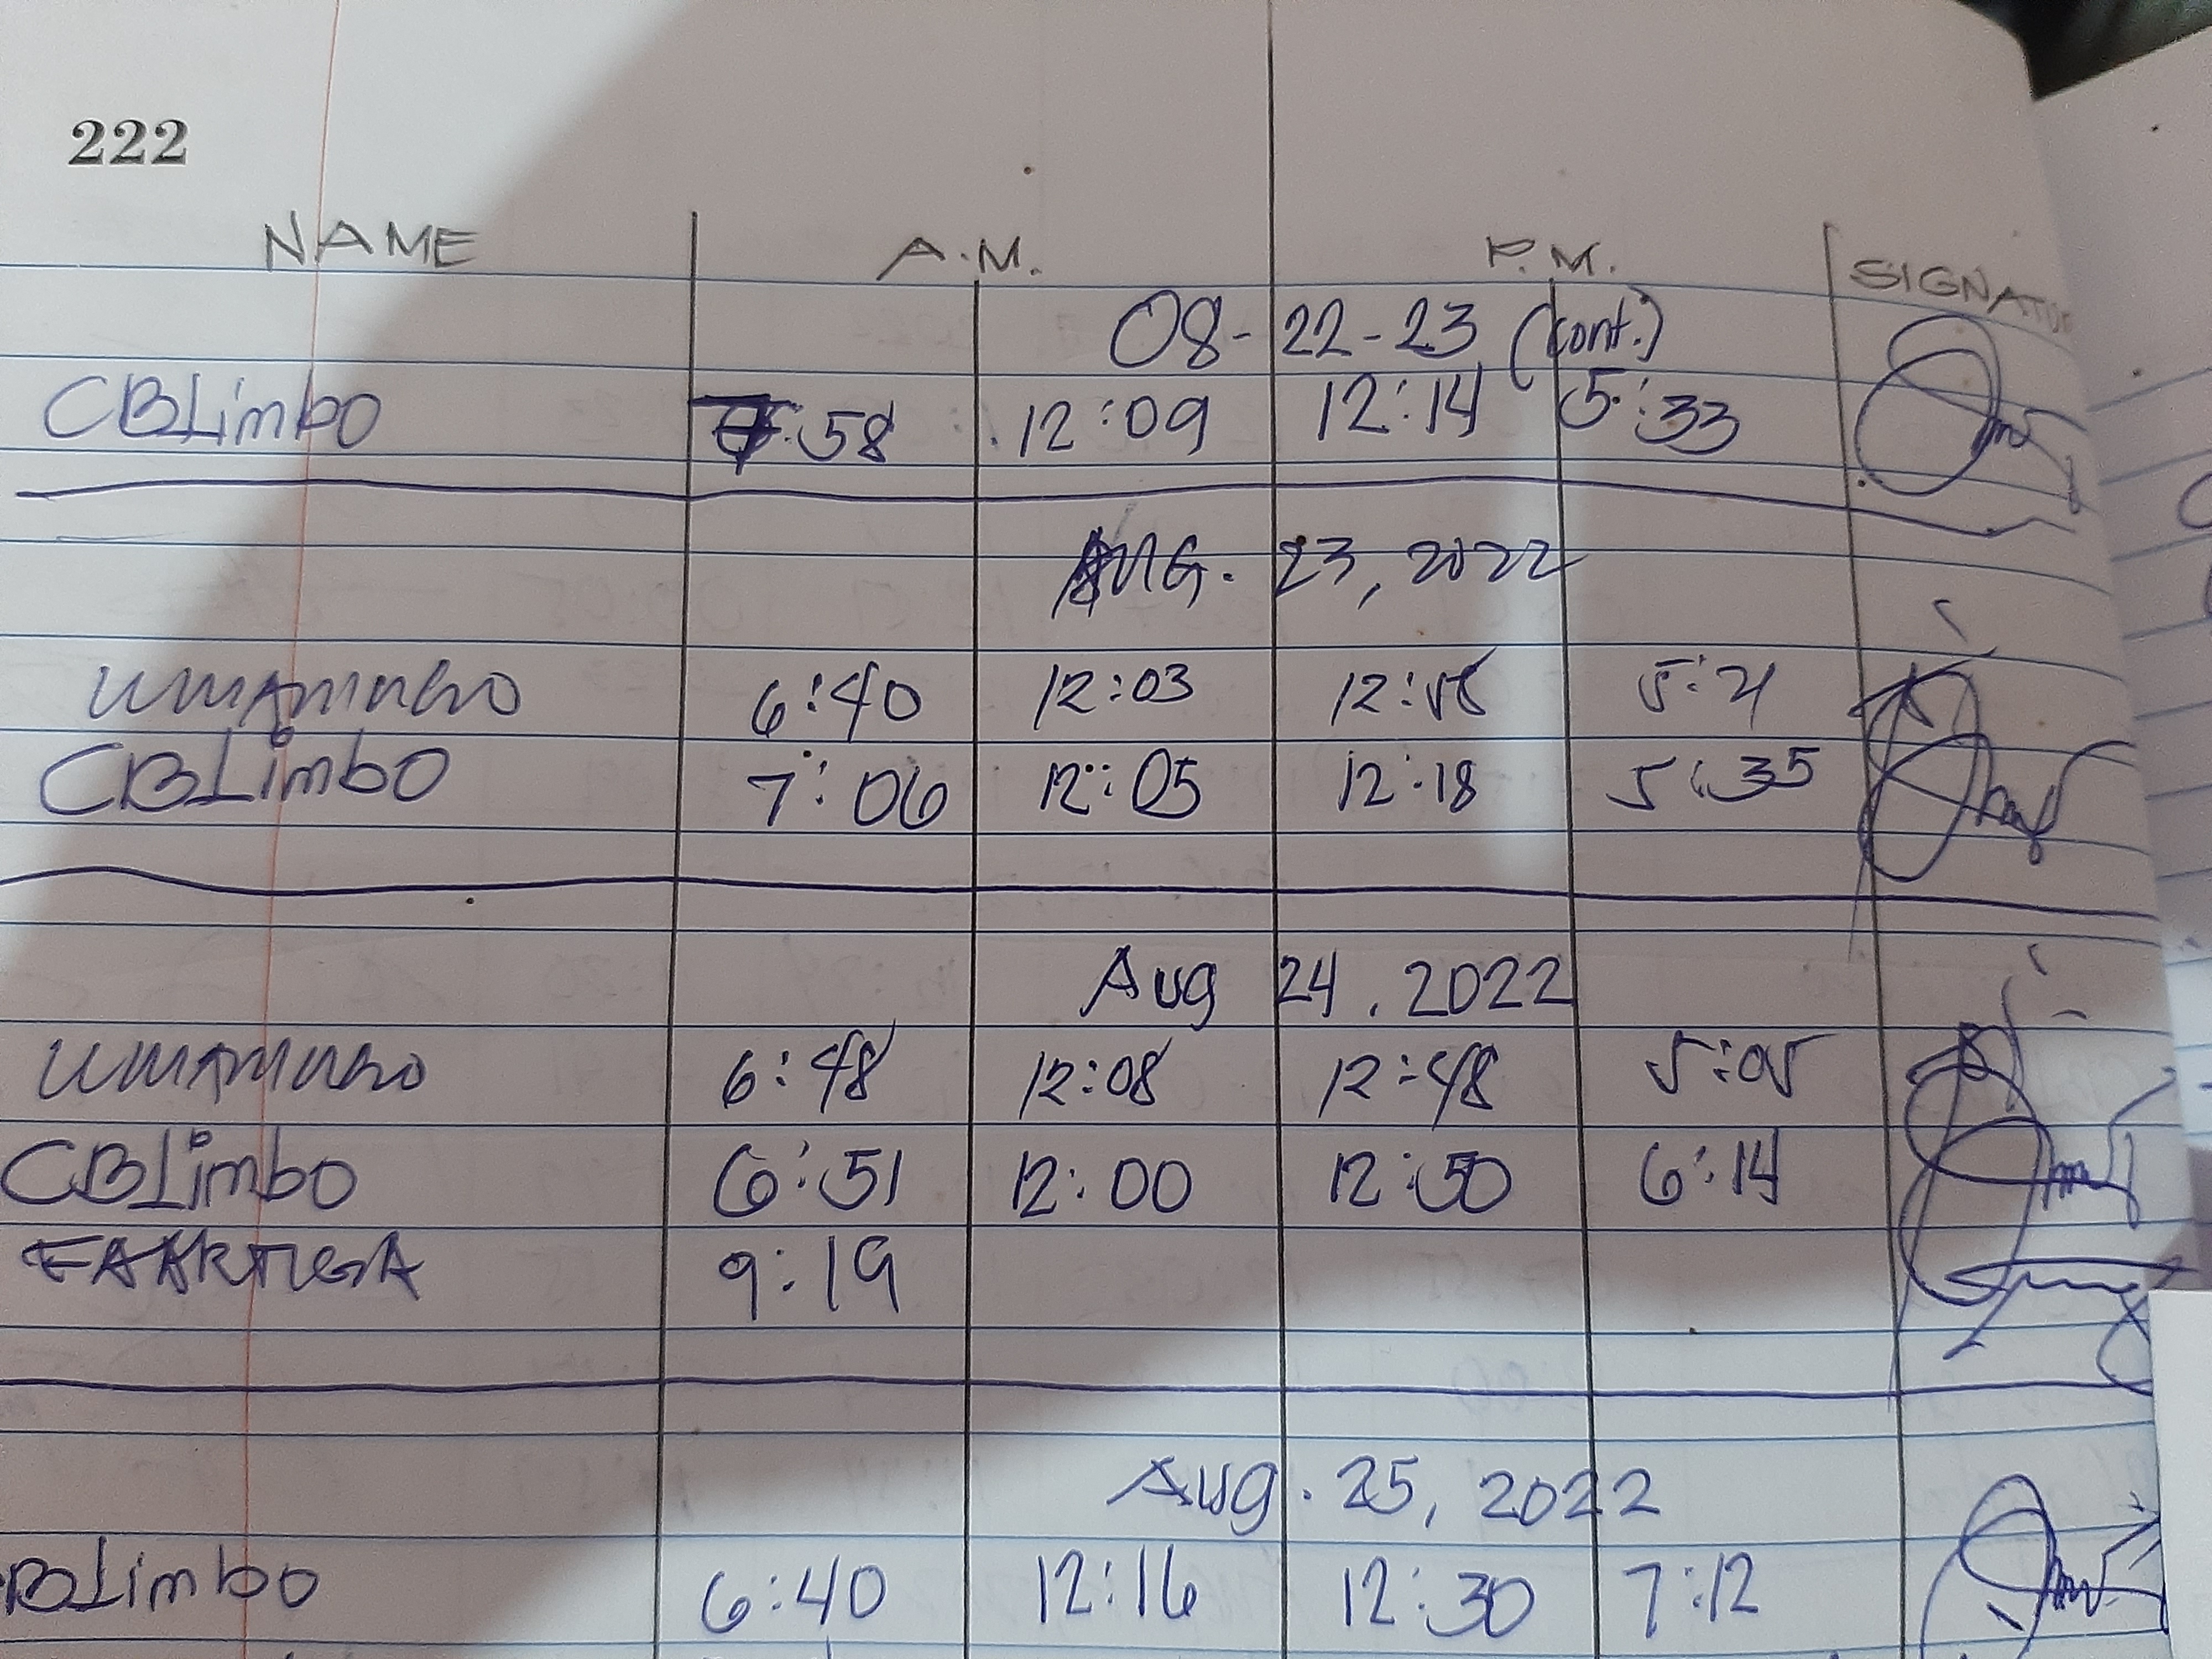 222
NAME A.M. P.M. SIGNATU
08-22-23 (cont.)
CBLimbo :58 12:09 12:14 5:33
AUG. 23, 2022
6:40 12:03 12:58 5:21
CBLimbo 7:06 12:05 12:18 5:35
Aug 24, 2022
6:48 12:08 12:48 5:05
CBLimbo 6:51 12:00 12:50 6:14
EAARTIGA 9:19
Aug. 25, 2022
BLimbo 6:40 12:16 12:30 7:12